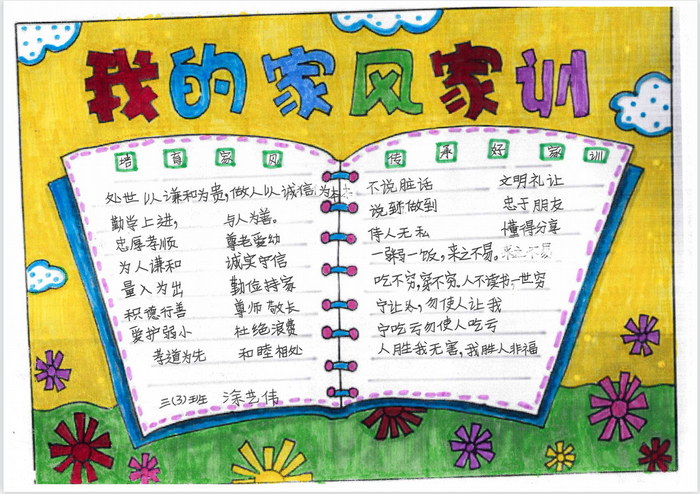 我的家风家训
培育家风
传承好家训
处世以谦和为贵,做人以诚信为本
勤学上进, 与人为善。
忠厚孝顺 尊老爱幼
为人谦和 诚实守信
量入为出 勤俭持家
积德行善 尊师敬长
爱护弱小 杜绝浪费
孝道为先 和睦相处
三(3)班
不说脏话 文明礼让
说到做到 忠于朋友
待人无私 懂得分享
一粥一饭,来之不易。
吃不穷,穿不穷。人不读书一世穷
宁让人,勿使人让我
宁吃亏勿使人吃亏
人胜我无害,我胜人非福